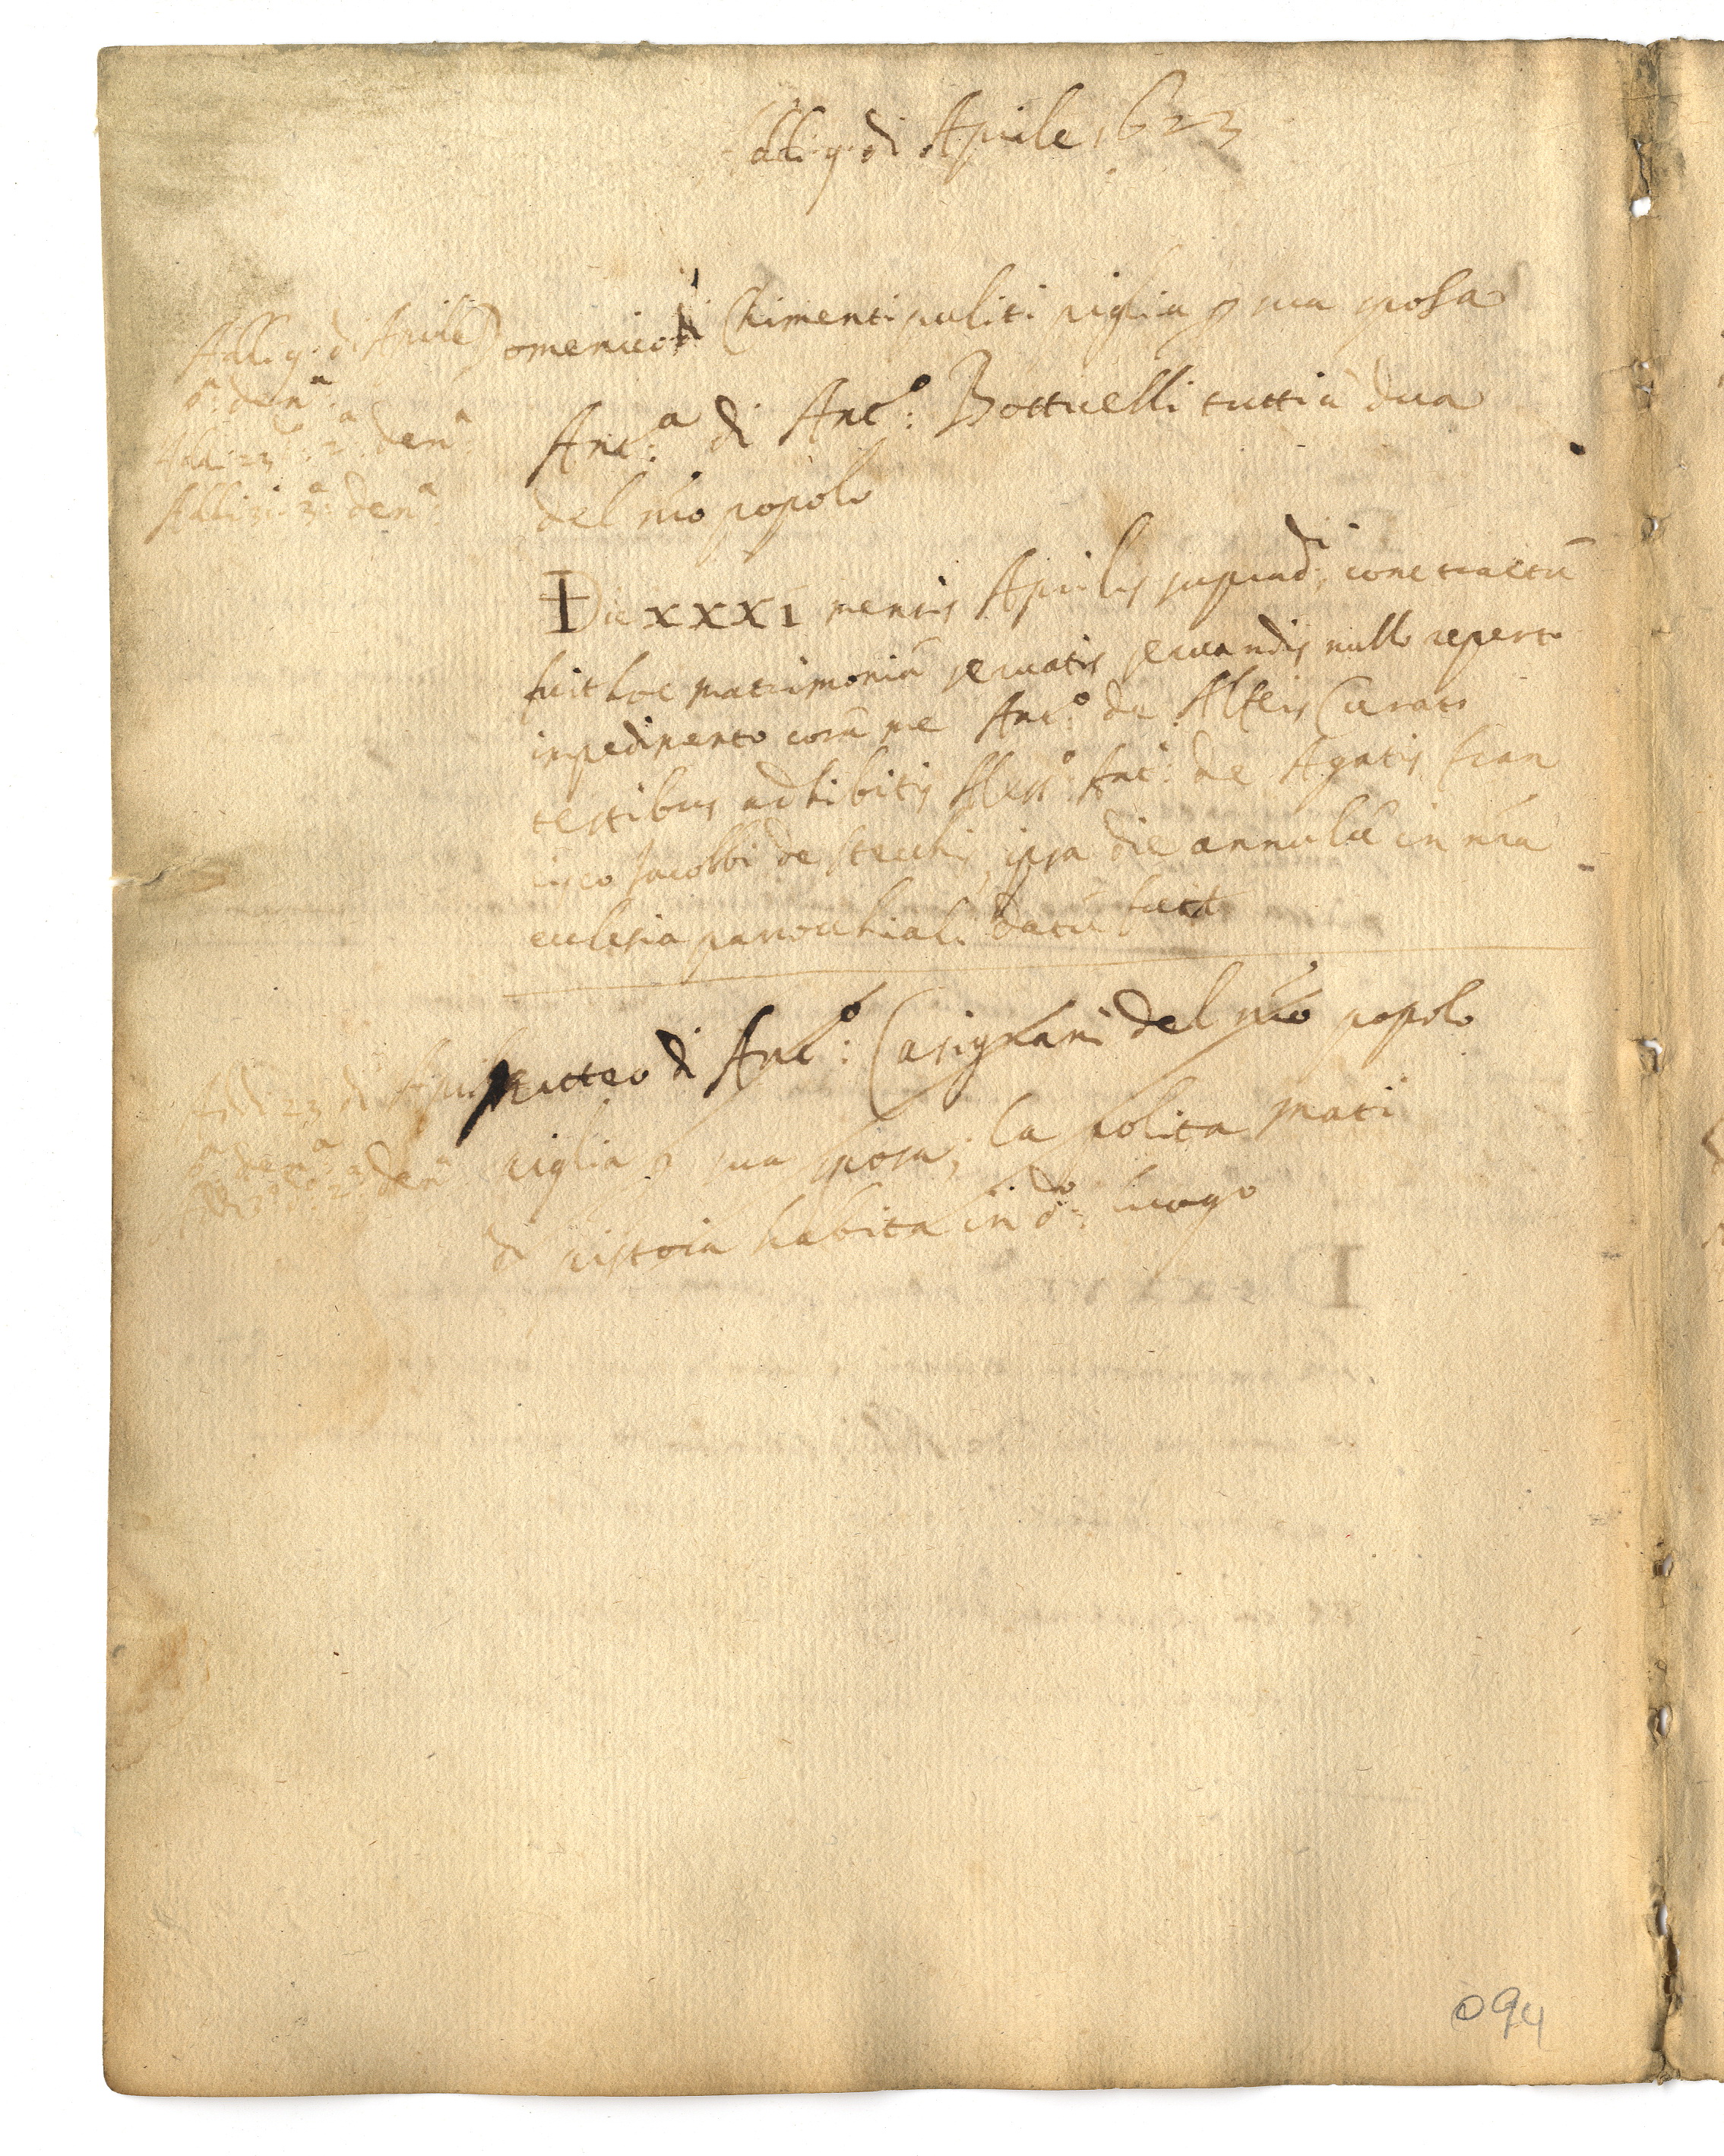 Addi 9 di Aprile 1623
Addi 9 di Aprile
pª denª
Addi 23 2ª denª
Addi 31 3ª denª
Domenico di Chimenti puliti piglia p sua sposa
Antª di Antº: Botticelli tutti a dua
del nrõ popolo
Die XXXI mensis Aprilis supradi contractũ
fuit hoc matrimoniũ servatis servandis nullo reperto
impedimento corã me Antº: de Alteis Curato
testibus adhibitis Antº: de Agatis fran
cisco Jacobbi de Stecchis ipsa die annulũ in nrã
ecclesia parrochiali datũ fuit
Addi 23 di Aprile
pª denª
Addi 2ª denª
Matteo di Antº: Casignani del nrõ popolo
piglia p sua sposa, la polita mati
di pistoia habita in dº: luogo
094